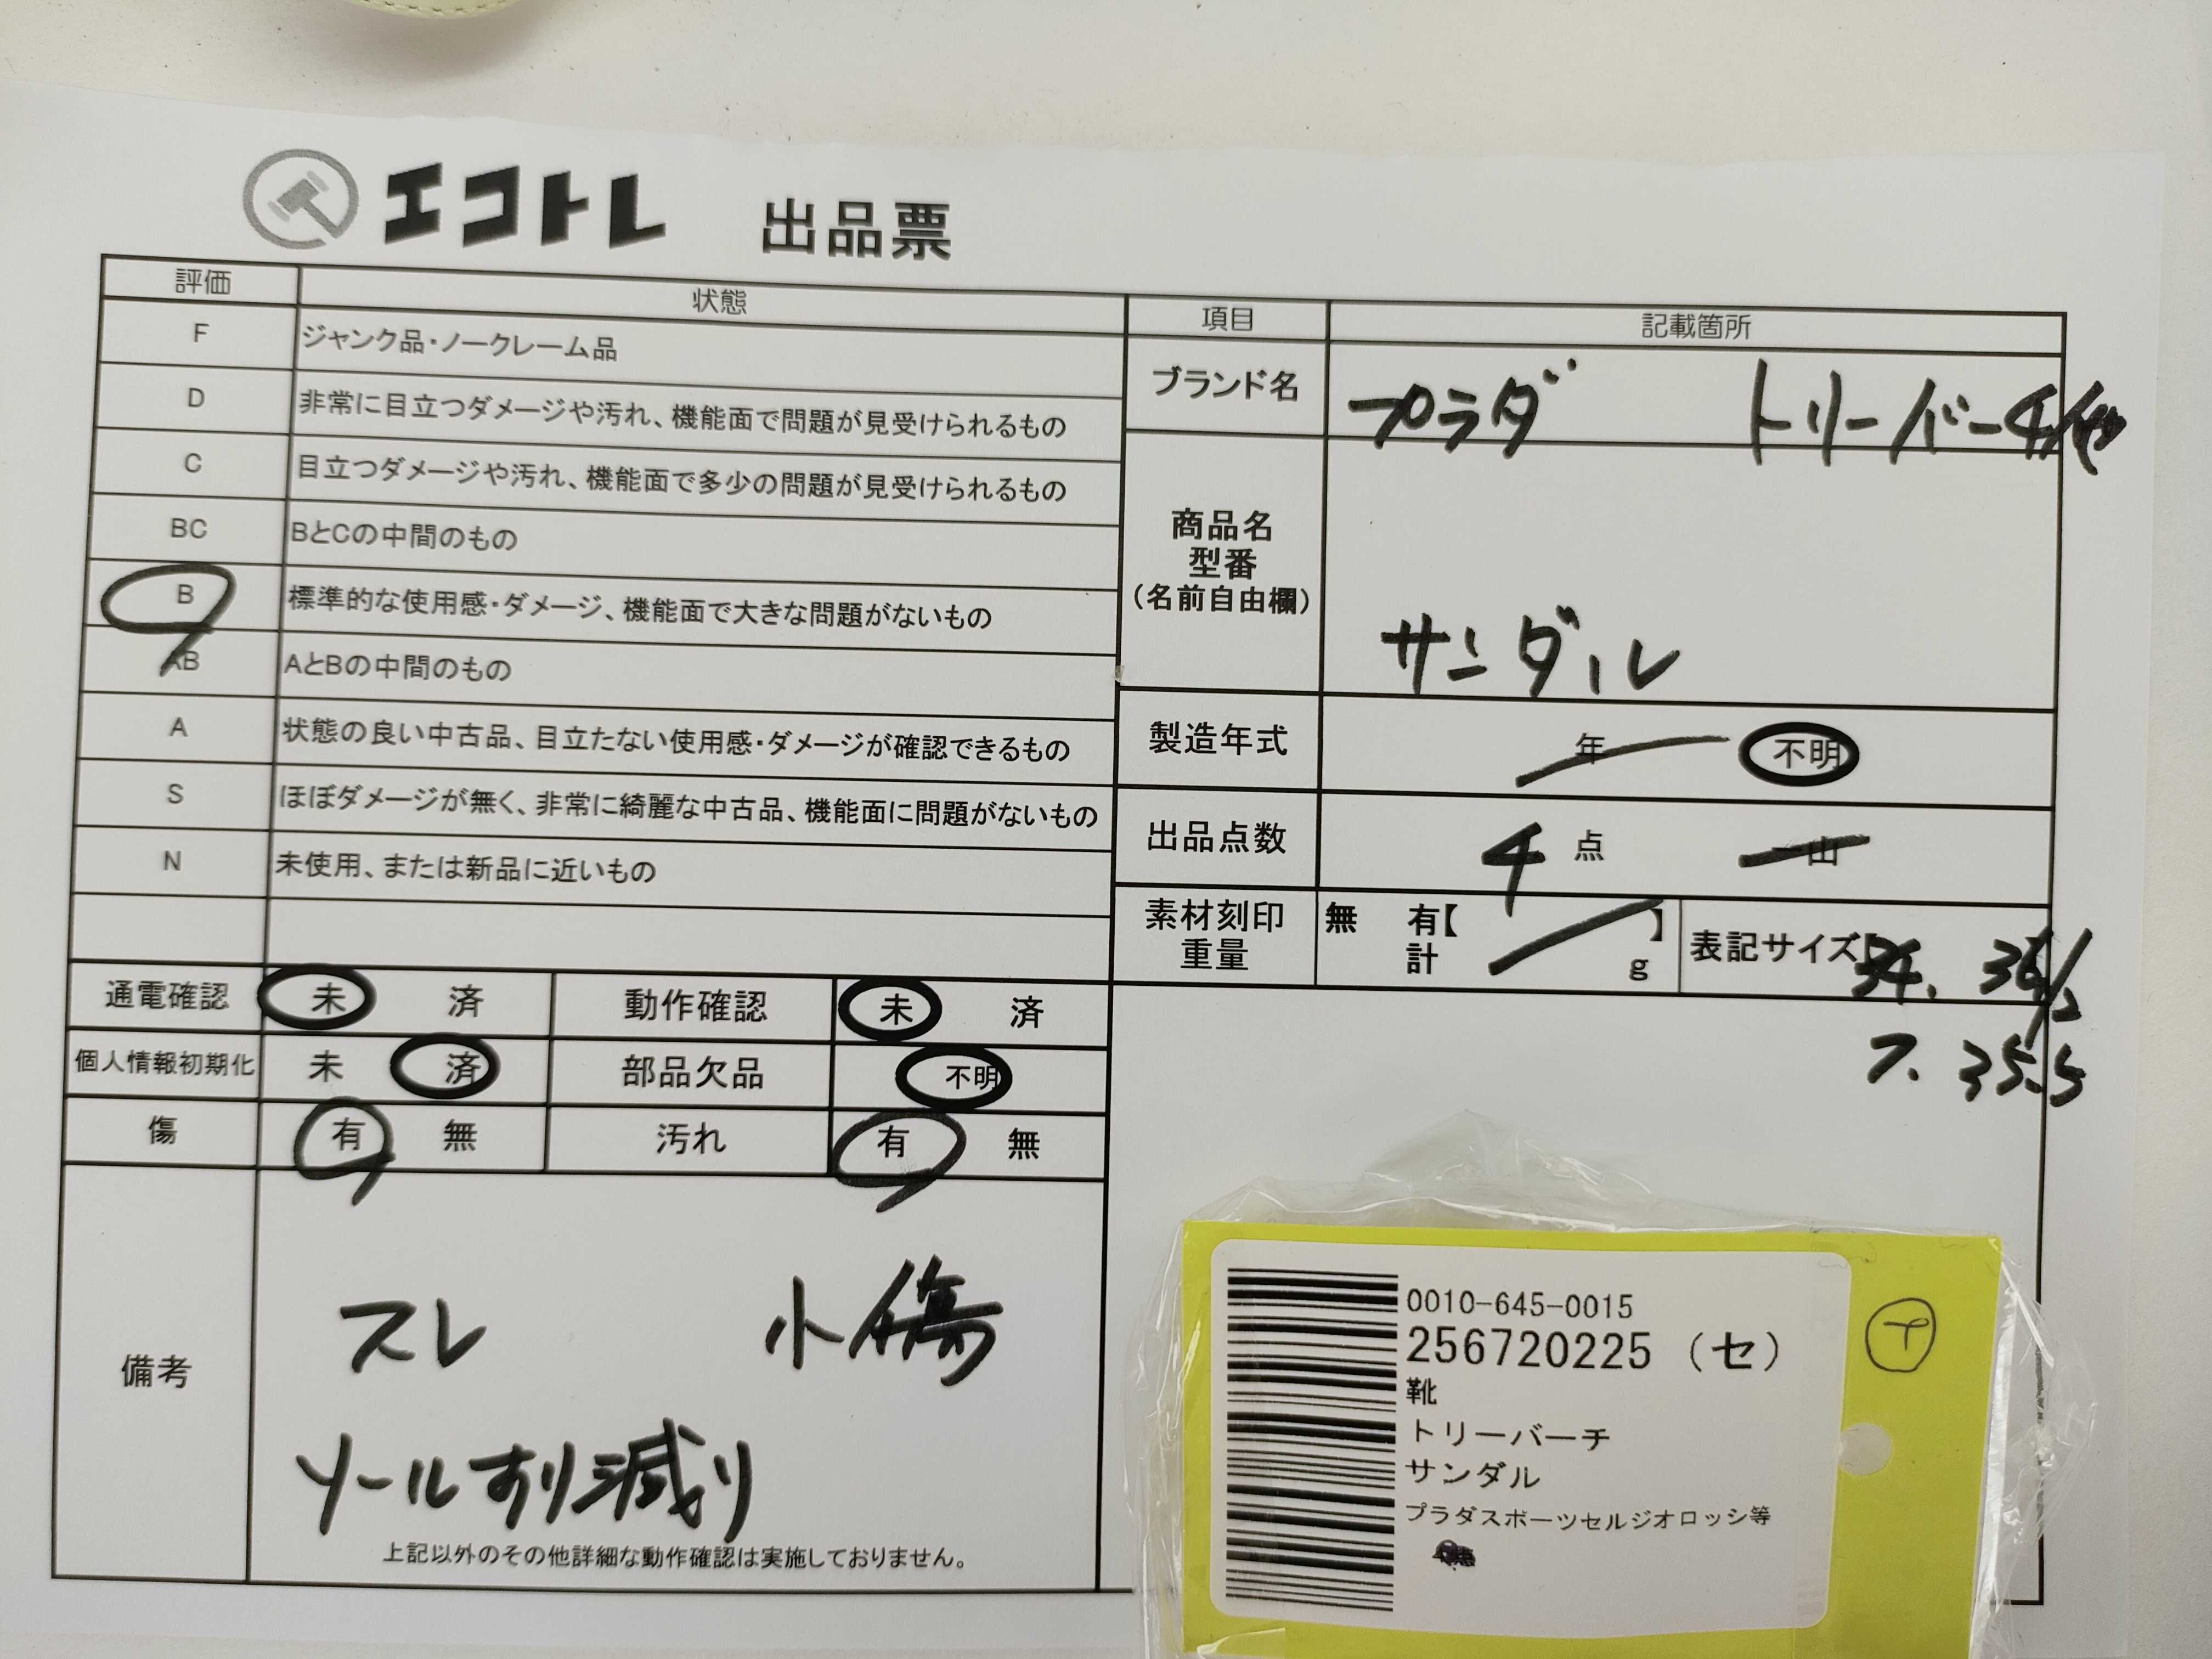 エコトレ 出品票
評価 状態
F ジャンク品・ノークレーム品
D 非常に目立つダメージや汚れ、機能面で問題が見受けられるもの
C 目立つダメージや汚れ、機能面で多少の問題が見受けられるもの
BC BとCの中間のもの
B 標準的な使用感・ダメージ、機能面で大きな問題がないもの
AB AとBの中間のもの
A 状態の良い中古品、目立たない使用感・ダメージが確認できるもの
S ほぼダメージが無く、非常に綺麗な中古品、機能面に問題がないもの
N 未使用、または新品に近いもの
項目 記載箇所
ブランド名 プラダ トリーバーチ/他
商品名
型番
(名前自由欄)
サンダル
製造年式 年 不明
出品点数 4 点 一山
素材刻印 無 有【 】
重量 計 g
表記サイズ
7. 35.5
通電確認 未 済 動作確認 未 済
個人情報初期化 未 済 部品欠品 不明
傷 有 無 汚れ 有 無
備考
スレ 小傷
ソールすり減り
上記以外のその他詳細な動作確認は実施しておりません。
0010-645-0015
256720225 (セ)
靴
トリーバーチ
サンダル
プラダスポーツセルジオロッシ等